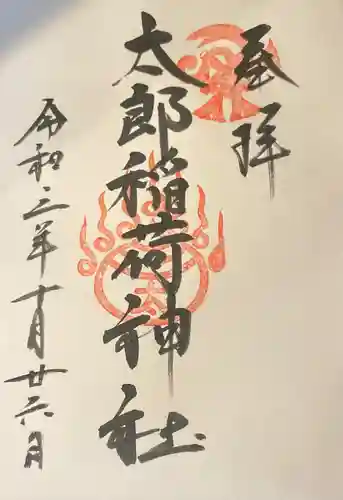 奉拝
太郎稲荷神社
令和三年十月廿六日